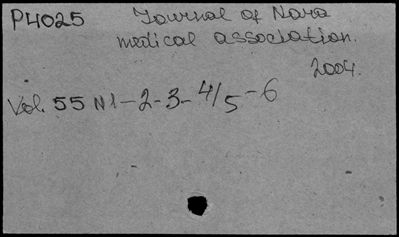 P4025 Journal of Nara
medical association.
2004.
Vol. 55 N1-2-3-4/5-6